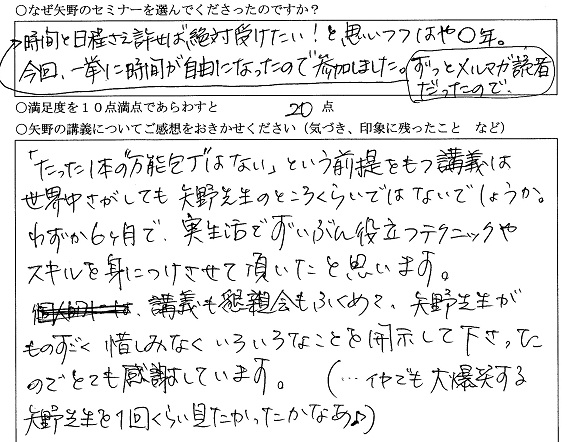 ○なぜ矢野のセミナーを選んでくださったのですか？
時間と日程さえ許せば絶対受けたい！と思いつつはや〇年。
今回、一挙に時間が自由になったので参加しました。
ずっとメルマガ読者
だったので。
○満足度を１０点満点であらわすと 20 点
○矢野の講義についてご感想をおきかせください（気づき、印象に残ったこと など）
「たった1本の“万能包丁はない」という前提をもつ講義は
世界中さがしても矢野先生のところくらいではないでしょうか。
わずか6ヶ月で、実生活でずいぶん役立つテクニックや
スキルを身につけさせて頂いたと思います。
、講義も懇親会もふくめて、矢野先生が
ものすごく惜しみなくいろいろなことを開示して下さった
のでとても感謝しています。 （…イヤでも大爆笑する
矢野先生を1回くらい見たかったかなあ♪）